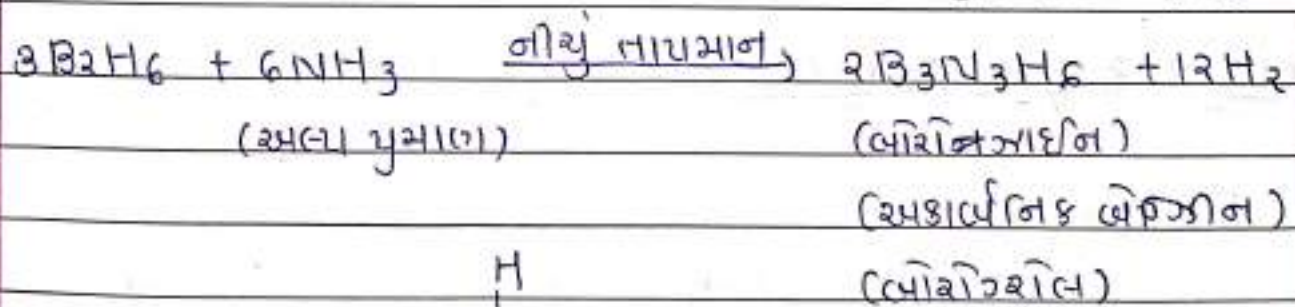 3B2H6 + 6NH3 નીચું તાપમાન → 2B3N3H6 + 12H2
(અલ્પ પ્રમાણ) (બોરેનિઝાઈન)
(અકાર્બનિક બેન્ઝીન)
H (બોરોઝોલ)